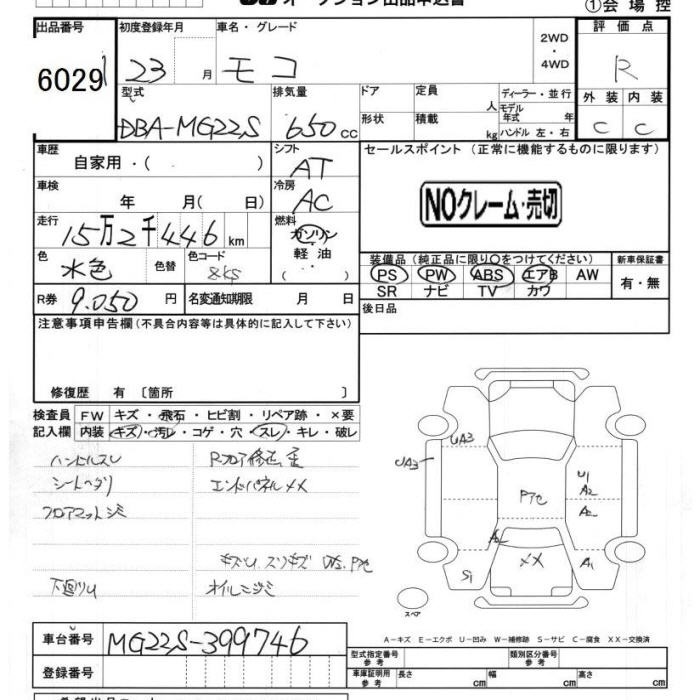 オークション出品申込書 ①会場控
出品番号 初度登録年月 車名・グレード 2WD・4WD 評価点
6029 23 月 モコ R
型式 排気量 ドア 定員 人 ディーラー・並行 外装 内装
DBA-MG22S 650 cc 形状 積載 kg モデル年式 年 C C
ハンドル 左・右
車歴 シフト セールスポイント (正常に機能するものに限ります)
自家用・( ) AT
車検 冷房
年 月( 日) AC NOクレーム・売切
走行 燃料
15万2千446 km ガソリン
軽油
( )
色 色替 色コード 装備品 (純正品に限り○をつけてください) 新車保証書
水色 PS PW ABS エアB AW 有・無
SR ナビ TV カワ
R券 9.050 円 名変通知期限 月 日 後日品
注意事項申告欄 (不具合内容等は具体的に記入して下さい)
修復歴 有 〔箇所 〕
検査員 FW キズ・飛石・ヒビ割・リペア跡・×要
記入欄 内装 キズ・汚レ・コゲ・穴・スレ・キレ・破レ
ハンドルスレ Rフロア修正歪
シートヘタリ エンドパネルメメ
フロアマットジミ
キズU スリキズ
下廻りU オイルニジミ
UA3 UA3 U1 A2 A2
S1 XX A1
スペア
A−キズ E−エクボ U−凹み W−補修跡 S−サビ C−腐食 XX−交換済
車台番号 MG22S-399746
登録番号
型式指定番号 参考 類別区分番号 参考
車庫証明用 参考 長さ cm 幅 cm 高さ cm